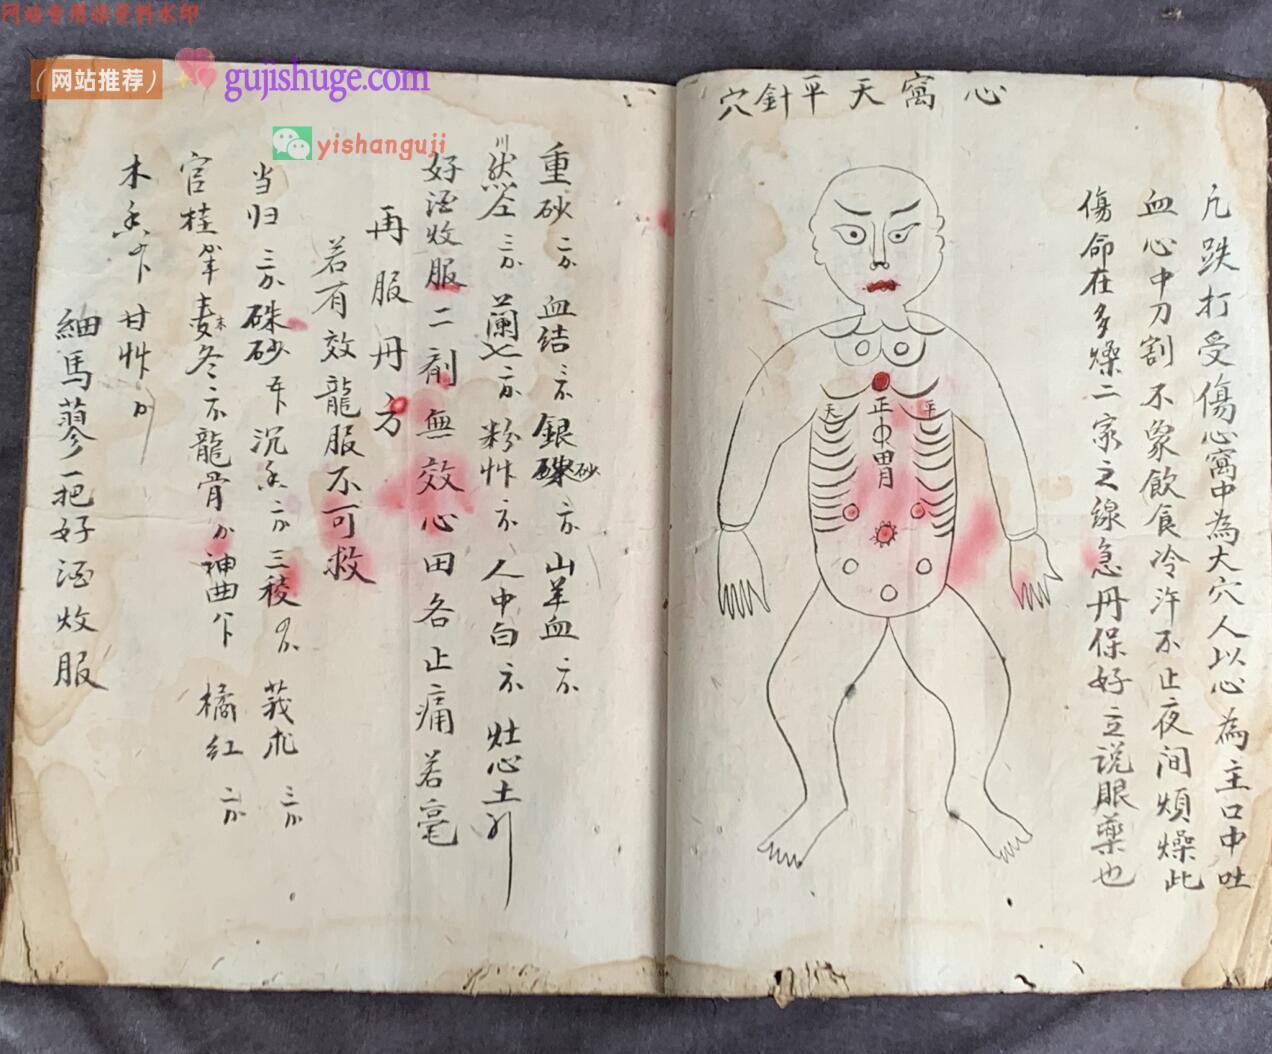 网站专用非资料水印
（网站推荐）
gujishuge.com
yishanguji
心窩天平針穴
凢跌打受傷心窩中為大穴人以心為主口中吐
血心中刀割不象飲食冷汗不止夜间煩燥此
傷命在多燥二家之線急丹保好立说眼藥也
天 正中胃 平
重砂二分 血结 銀硃砂 山羊血
川然 三分 蘭七 粉艸 人中白 灶心土引
好酒炆服二剤無效心田各止痛若毫
再服丹方
若有效龍服不可救
当归三分硃砂 沉香 三稜 莪朮三分
官桂 麦冬 龍骨 神曲 橘红二分
木香 甘艸
細馬蓼一把好酒炆服